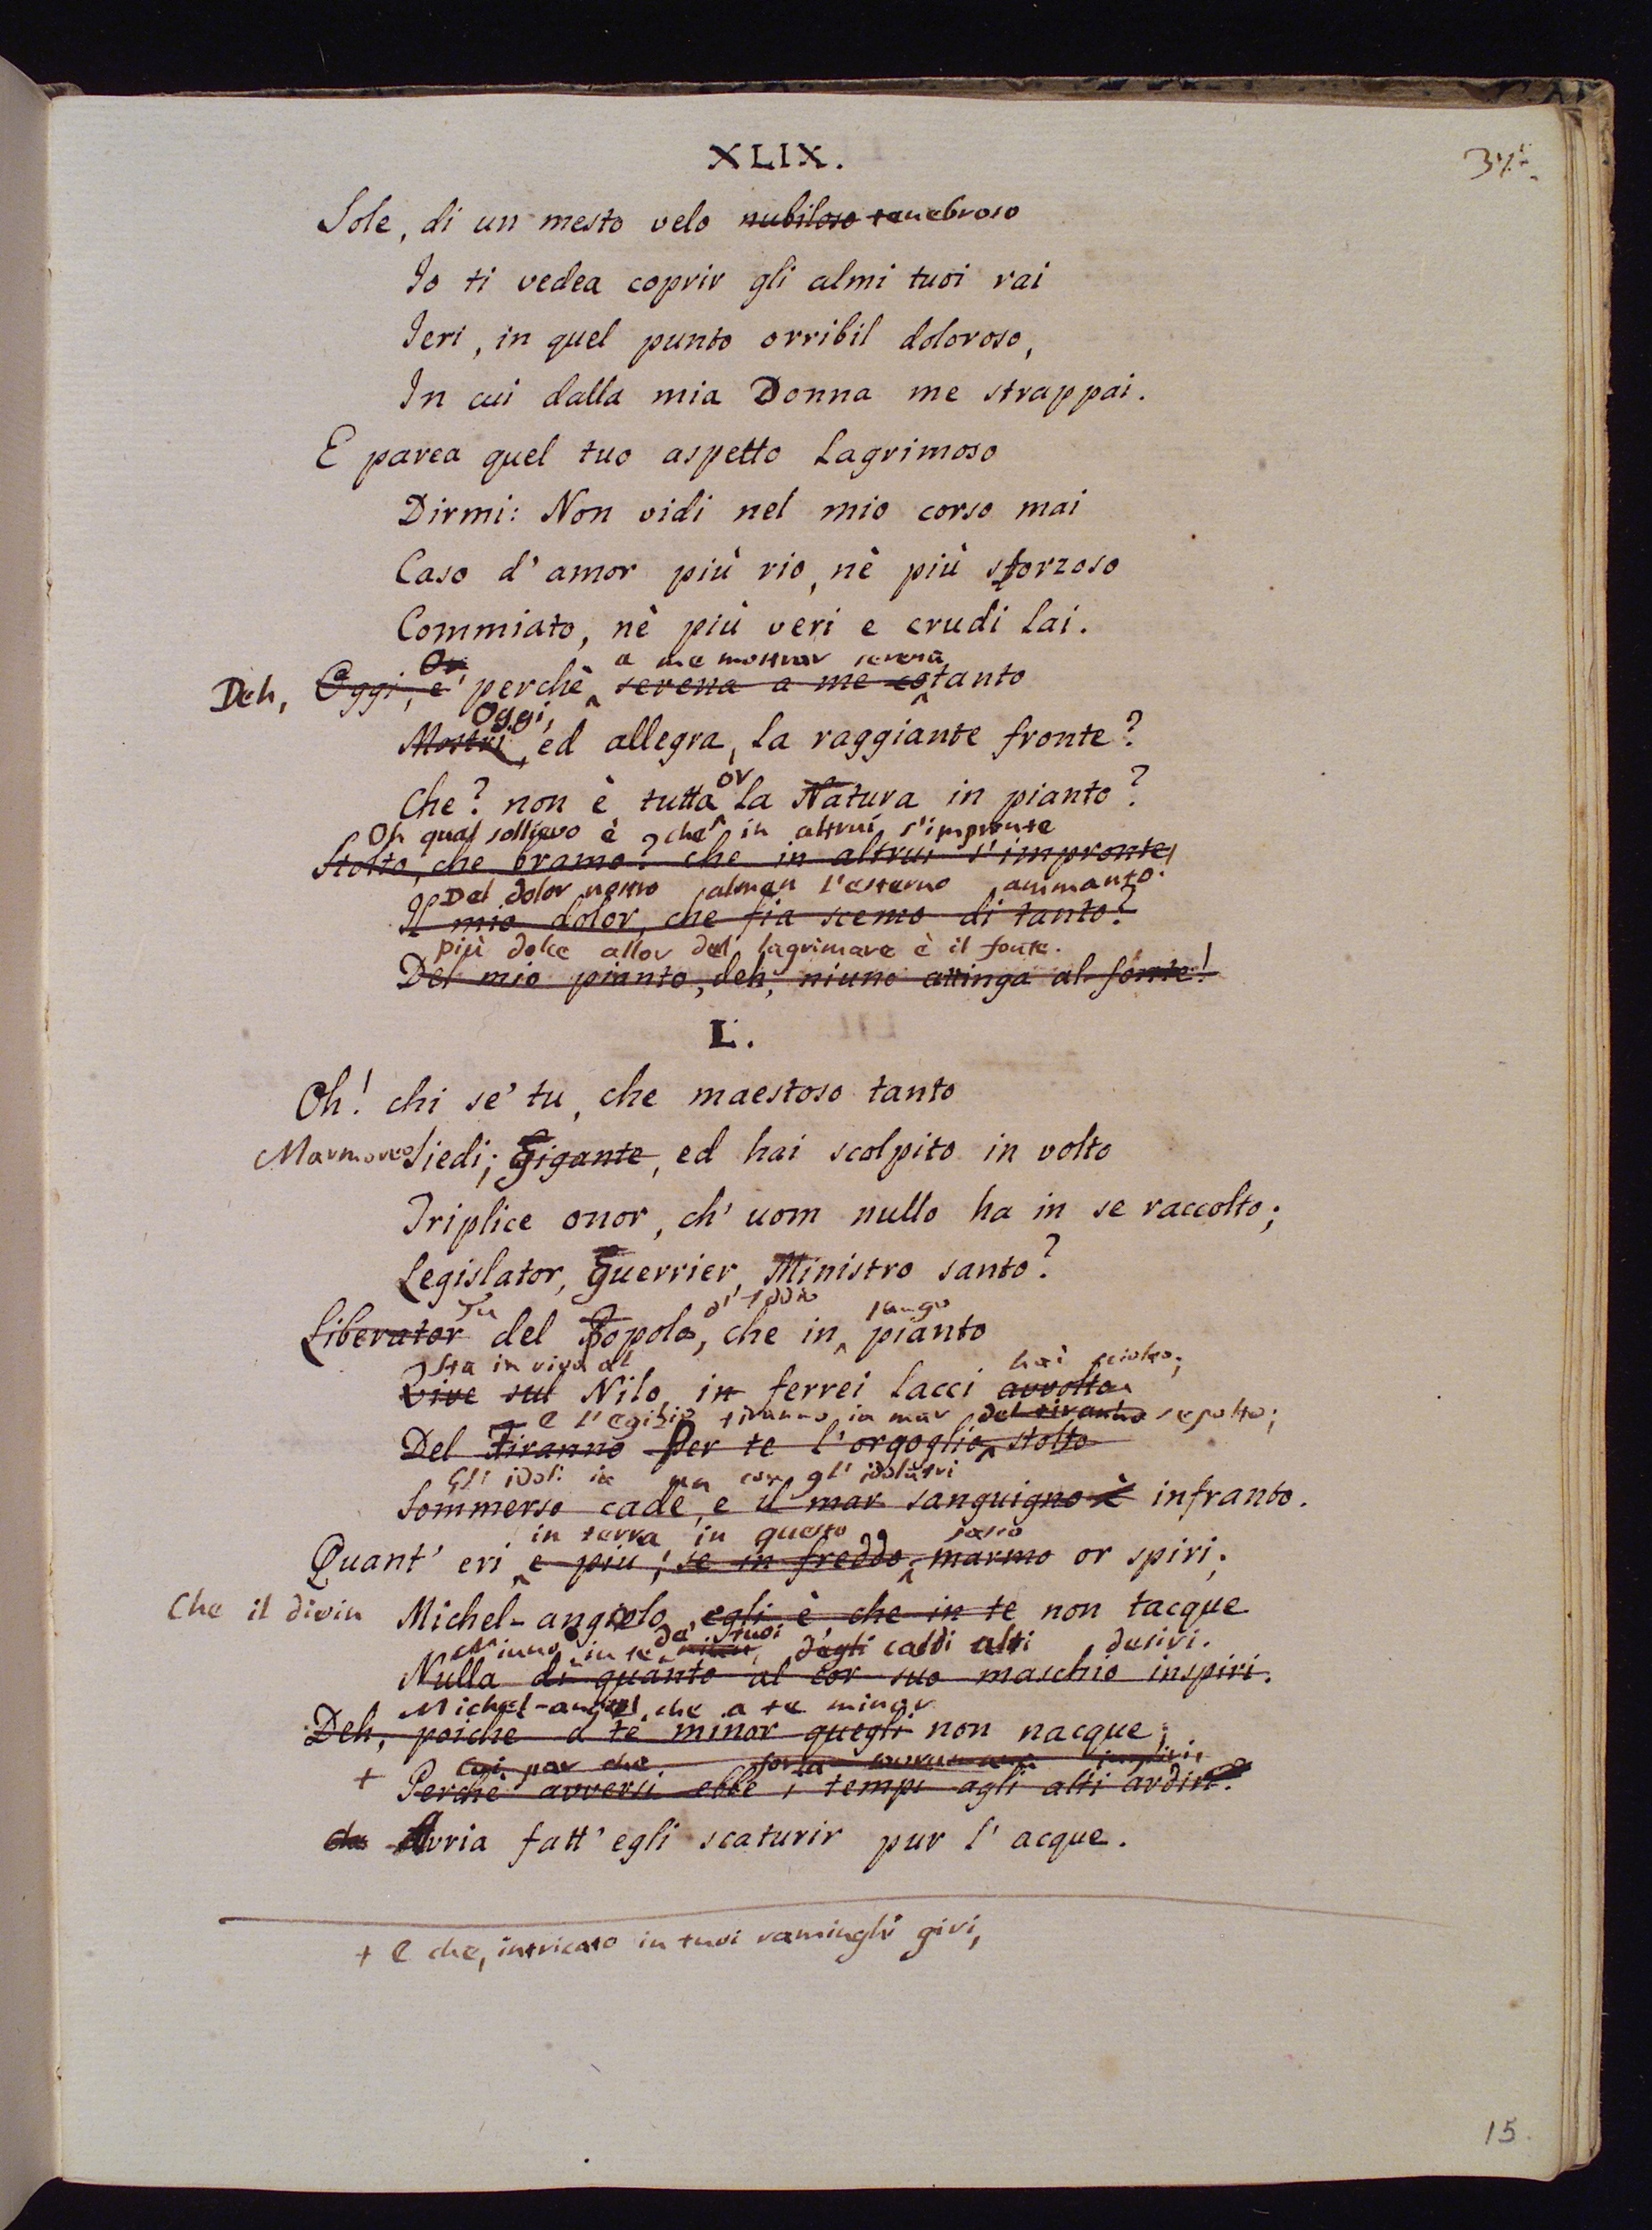 XLIX.
Sole, di un mesto velo nubiloso tenebroso
Io ti vedea coprir gli almi tuoi rai
Ieri, in quel punto orribil doloroso,
In cui dalla mia Donna me strappai.
E parea quel tuo aspetto lagrimoso
Dirmi: Non vidi nel mio corso mai
Caso d'amor più rio, nè più sforzoso
Commiato, nè più veri e crudi lai.
Or, a me mostrar serena
Deh, Oggi, e perchè serena a me cotanto
Oggi,
Mostri, ed allegra, la raggiante fronte?
or
Che? non è tutta la Natura in pianto?
Oh qual sollievo è che in altrui s'impronte
Stolto, che bramo? che in altrui s'impronte
Del dolor nostro almen l'esterno ammanto.
Il mio dolor, che fia scemo di tanto?
più dolce allor del lagrimare è il fonte.
Del mio pianto, deh, niuno attinga al fonte!
L.
Oh! chi se' tu, che maestoso tanto
Marmoreo Siedi; Gigante, ed hai scolpito in volto
Triplice onor, ch' uom nullo ha in se raccolto;
Legislator, Guerrier, Ministro santo?
Tu d'Iddio lungo
Liberator del Popolo, che in pianto
Sta in riva al hai sciolto;
Vive sul Nilo in ferrei lacci avvolto
E l'Egizio tiranno in mar del tiranno sepolto;
Del Tiranno Per te l'orgoglio stolto
Gli idoli in un con gl'idolatri
Sommerso cade, e il mar sanguigno è infranto.
in terra in questo sasso
Quant' eri e più; se in freddo marmo or spiri;
Che il divin Michel-angiolo egli è, che in te non tacque
Niuno in te de' tuoi degli caldi alti desiri.
Nulla di quanto al cor suo maschio inspiri.
Michel-angiol, che a te minor
Deh, poichè a te minor quegli non nacque;
Cui par che
+ Perchè avversi ebbe i tempi agli alti ardiri?
che Avria fatt' egli scaturir pur l' acque.
+ E che, intricato in tuoi raminghi giri,
15.